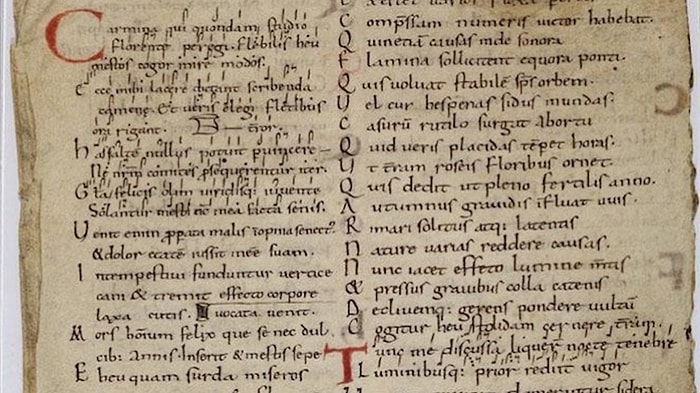 Carmina qui quondam studio
Florente peregi. Flebilis heu
mestos cogor inire modos.
Ecce mihi lacere dictant scribenda
camene. Et veris elegi fletibus
ora rigant.
has saltē nullus potuit puincere
Ne nrm̄ comites psequerentur iter.
Gl̄a felicis olim viridisq; iuvente
Solantur mesti nc̄ mea facta senis.
Venit enim ꝓpata malis inopina senect
& dolor etatē iussit inēe suam.
Intempestivi funduntur vertice
cani & tremit effecto corpore
laxa cutis. vocata venit.
Mors hominū felix que se nec dul
cib: Annis. Inserit & mestis sepe
Eheu quam surda miseros
Compͥsam numeris victor habebat.
Quinetiā causas unde sonora
Flamina sollicitent equora ponti.
Quis voluat stabilē sp̄s orbem.
Vel cur hesperias sidus in undas.
Casurū rutilo surgat abortu
Quid veris placidas tēpet horas.
Ut t̄ram roseis floribus ornet.
Quis dedit ut pleno fertilis anno.
Autumnus gravidis īfluat uvis.
Rimari solitus atq; latentis
Nature varias reddere causas.
Nunc iacet effeto lumine m̄tis
& pressus gravibus colla catenis
Declivemq; gerens pondere vultū
Cogitur heu stolidam cernere t̄ram.
Tunc me discussa liquer nocte tenebre
Luminibusq; prior rediit vigor